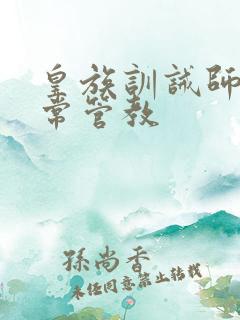 皇族訓誡師
常管教
孫尚香
未经同意禁止转载